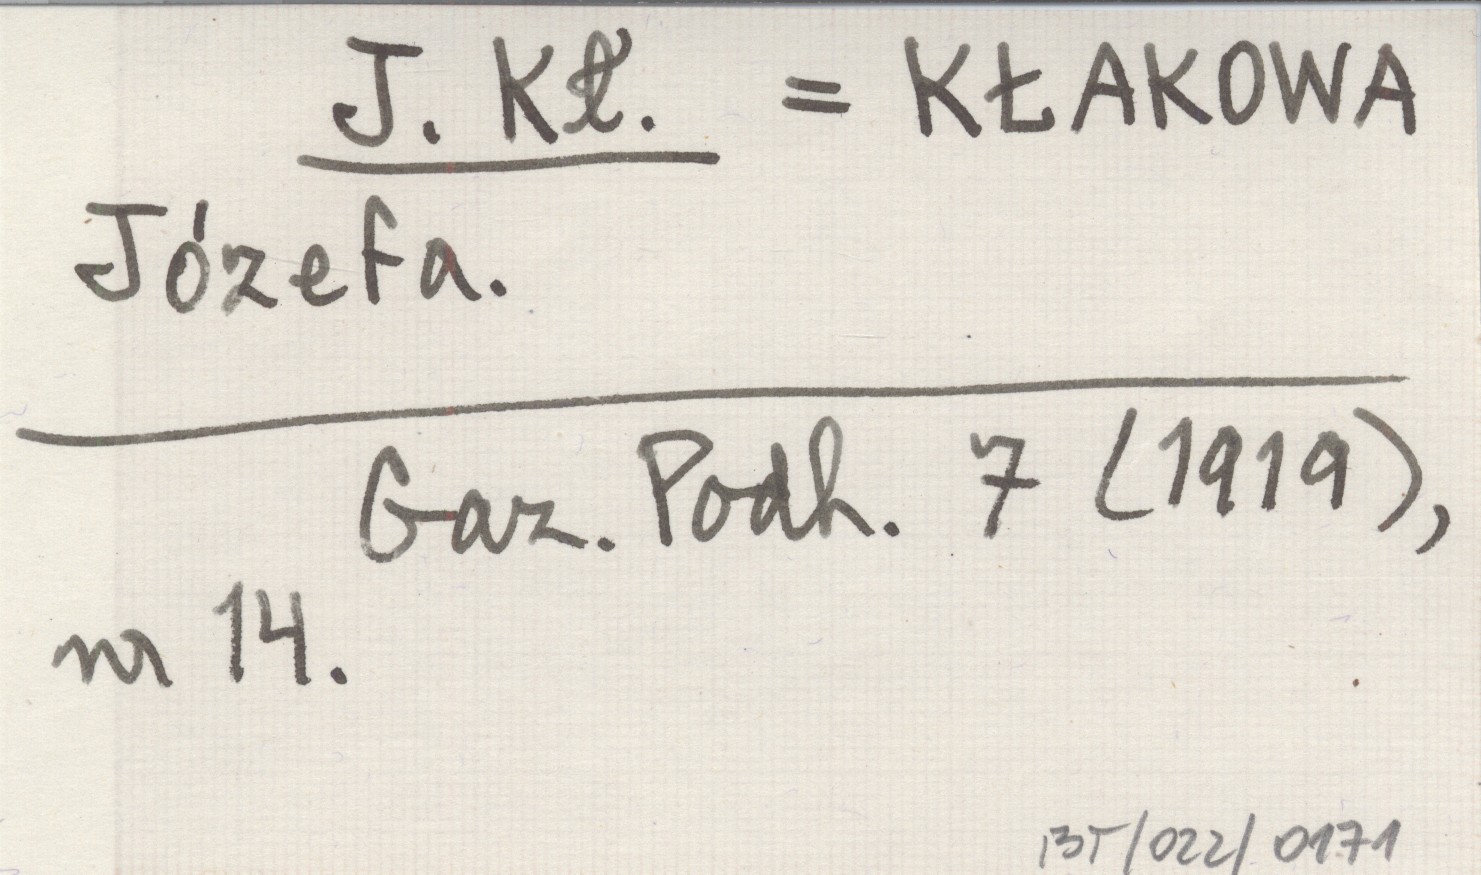 J. Kł. = KŁAKOWA
Józefa.
Gaz. Podh. 7 (1919),
nr 14.
BT/022/0171